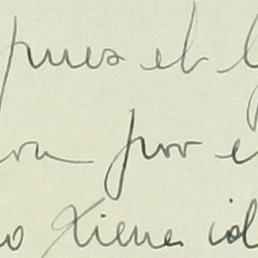 pues el
por e
tiene id